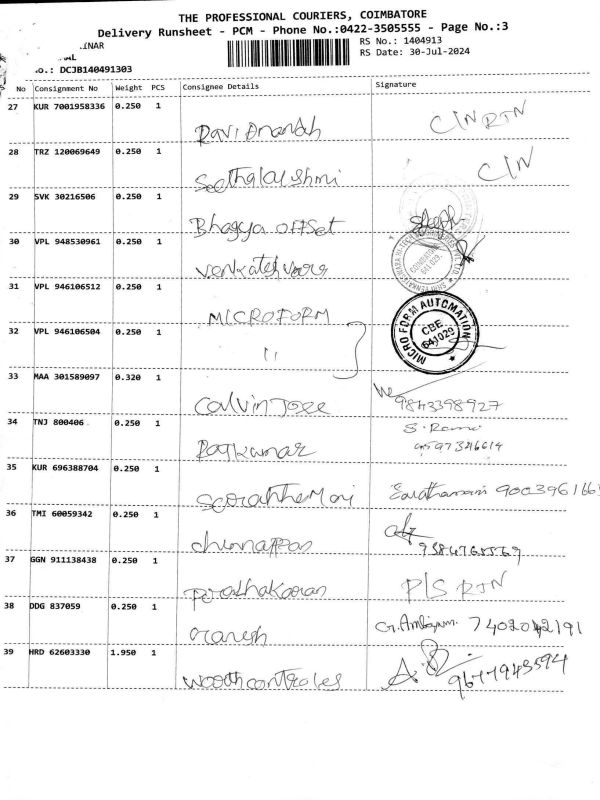 THE PROFESSIONAL COURIERS, COIMBATORE
Delivery Runsheet - PCM - Phone No.:0422-3505555 - Page No.:3
RS No.: 1404913
RS Date: 30-Jul-2024
DCJB140491303
No Consignment No Weight PCS Consignee Details Signature
27 KUR 7001958336 0.250 1
Ravi Anandh CIN RTN
28 TRZ 120069649 0.250 1
Seethalakshmi CIN
29 SVK 30216506 0.250 1
Bhagya offset
30 VPL 948530961 0.250 1
venkateshvara
31 VPL 946106512 0.250 1
MICROFORM
MICRO FORM AUTOMATION
CBE
641029
32 VPL 946106504 0.250 1
〃
33 MAA 301589097 0.320 1
Calvin Jose 9843398927
34 TNJ 800406 0.250 1
Rajkumar
35 KUR 696388704 0.250 1
900396166
36 TMI 60059342 0.250 1
chinnappan
37 GGN 911138438 0.250 1
P/S RTN
38 DDG 837059 0.250 1
Ganesh
39 HRD 62603330 1.950 1
9677943594